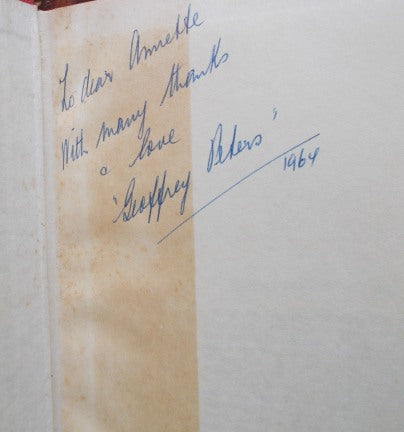 To dear Annette
With many thanks
& love
"Geoffrey Peters"
1964